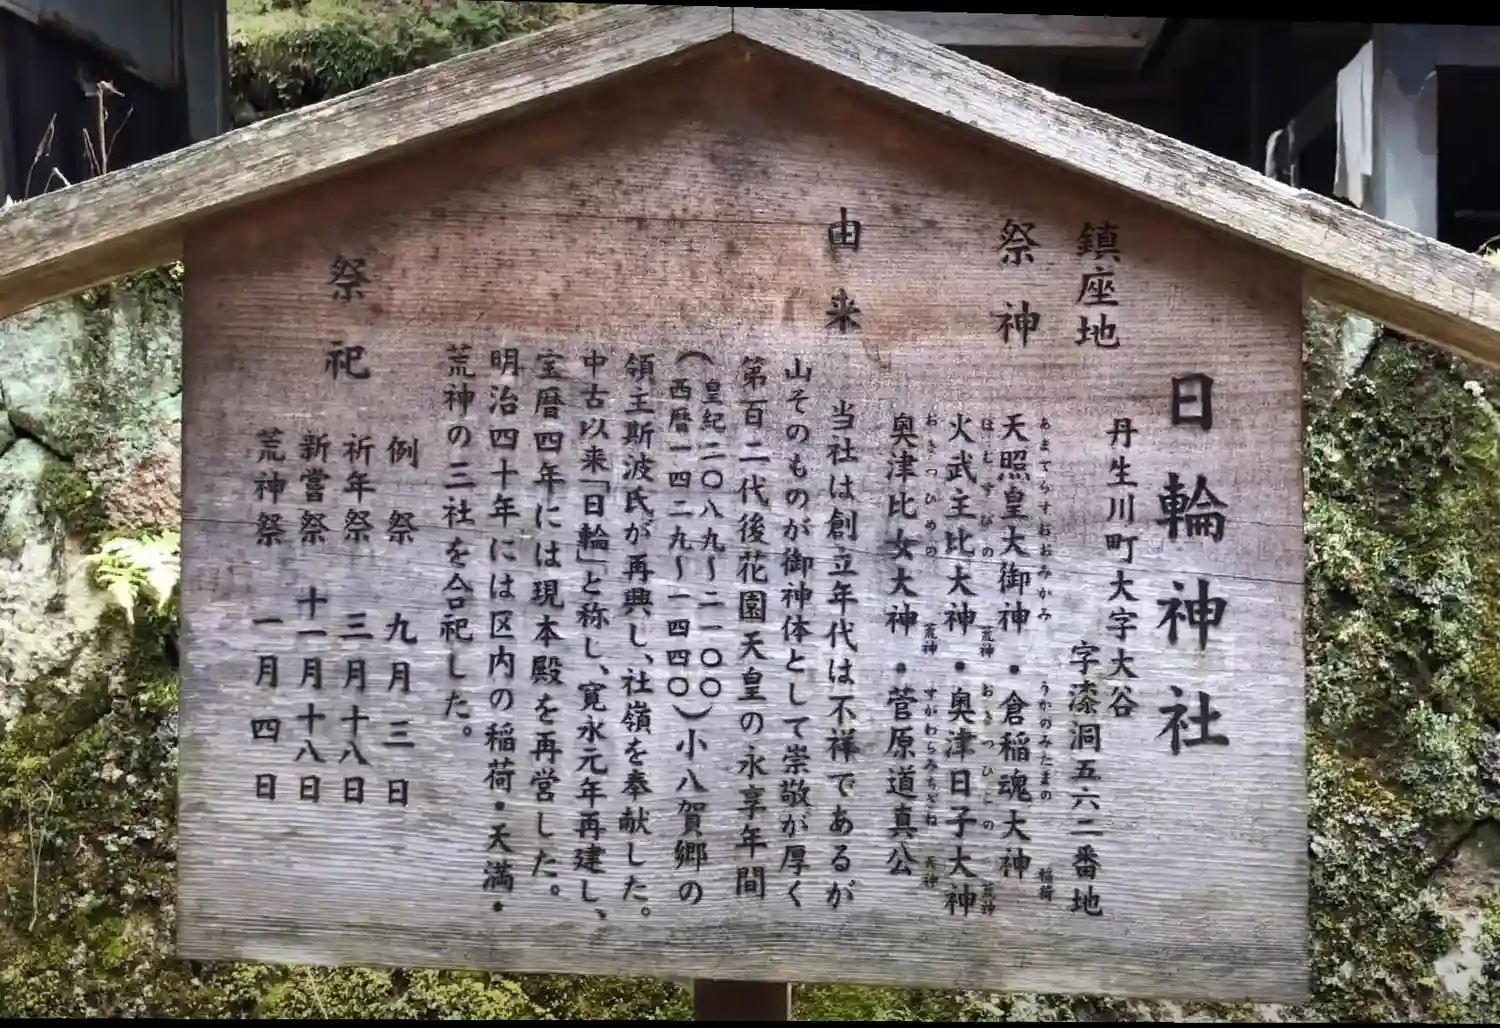 日輪神社
鎮座地
丹生川町大字大谷
字漆洞五六二番地
祭神
あまてらすおおみかみ
うかのみたまの
稲荷
天照皇大御神・倉稲魂大神
ほむすびの
荒神
おきつひこの
荒神
火武主比大神・奥津日子大神
おきつひめの
荒神
すがわらみちざね
天神
奥津比女大神・菅原道真公
由来
当社は創立年代は不祥であるが
山そのものが御神体として崇敬が厚く
第百二代後花園天皇の永享年間
(皇紀二〇八九〜二一〇〇
西暦一四二九〜一四四〇)小八賀郷の
領主斯波氏が再興し、社嶺を奉献した。
中古以来「日輪」と称し、寛永元年再建し、
宝暦四年には現本殿を再営した。
明治四十年には区内の稲荷・天満・
荒神の三社を合祀した。
祭祀
例祭 九月三日
祈年祭 三月十八日
新嘗祭 十一月十八日
荒神祭 一月四日